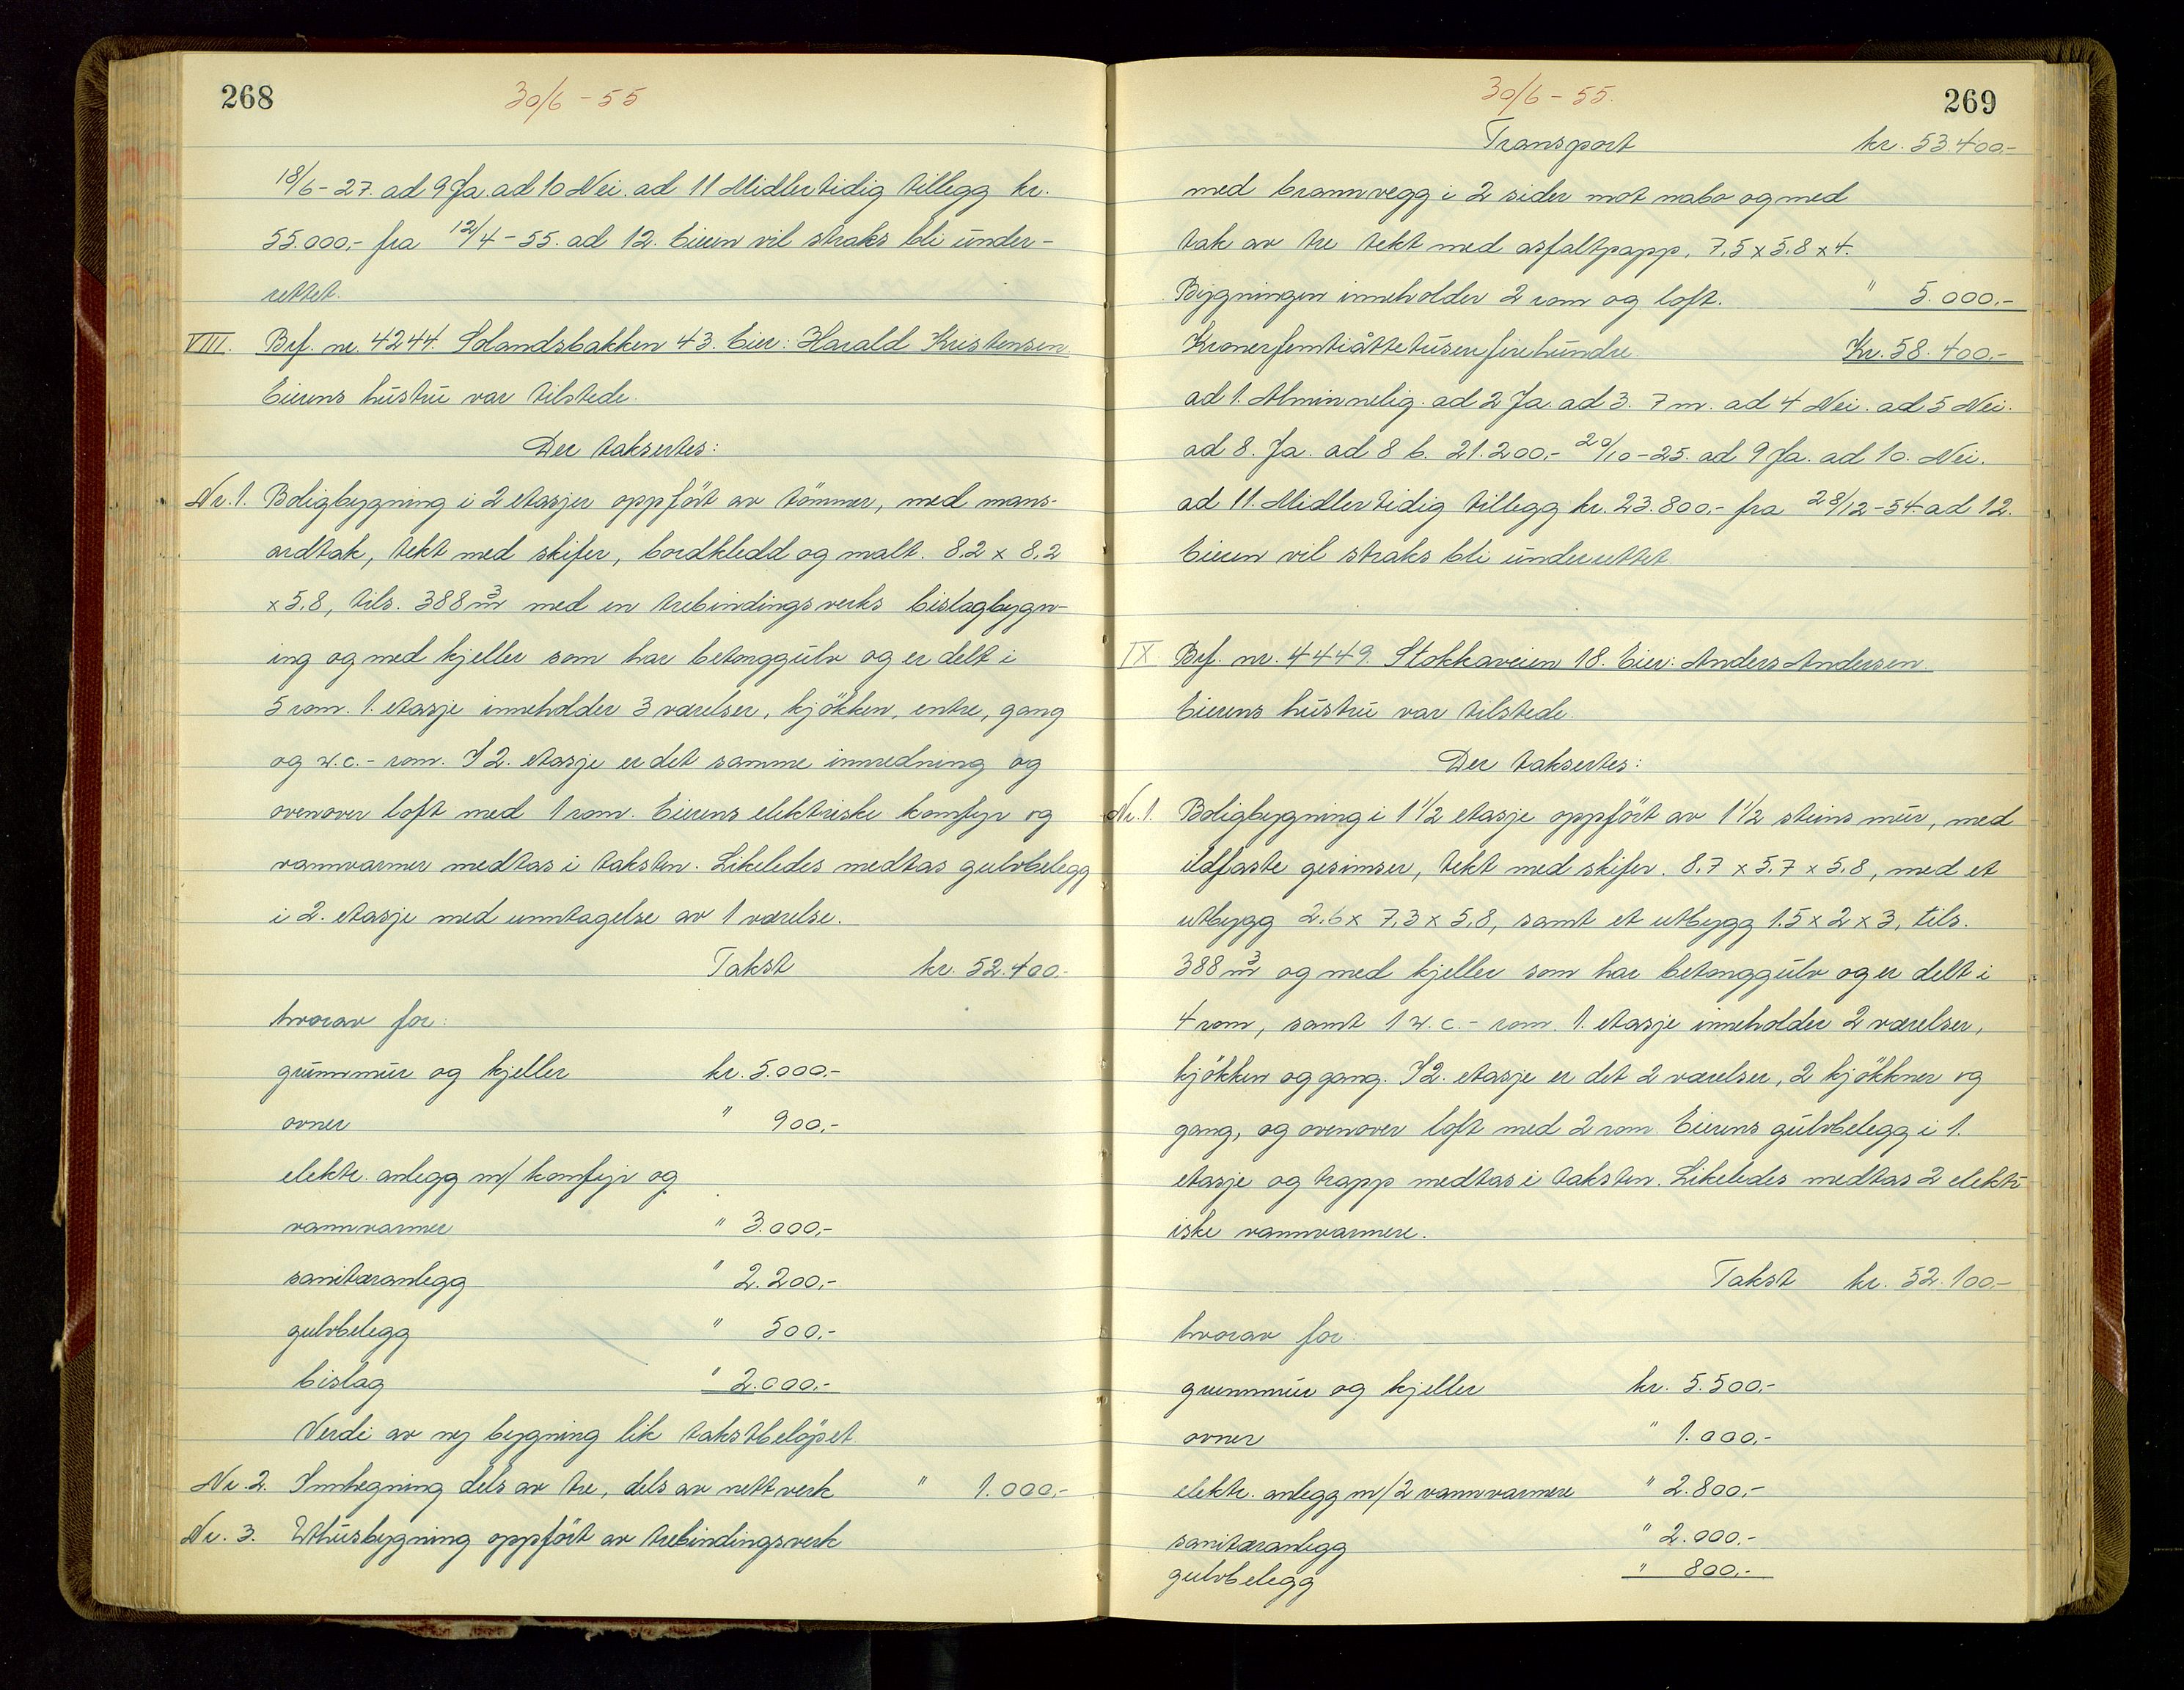 268
30/6 - 55
18/6 - 27. ad 9 Ja. ad 10 Nei. ad 11 Midlertidig tillegg kr.
55.000,- fra 12/4 - 55. ad 12. Eieren vil straks bli under-
rettet.
VIII. Brf. nr. 4244. Solandsbakken 43. Eier: Harald Kristensen
Eierens hustru var tilstede.
Der taksertes:
Nr. 1. Boligbygning i 2 etasjer oppfört av tömmer, med mans-
ardtak, tekt med skifer, bordkledd og malt. 8,2 x 8,2
x 5,8, tils. 388 m3 med en trebindingsverks bislagbygn-
ing og med kjeller som har betonggulv og er delt i
5 rom. 1. etasje inneholder 3 værelser, kjökken, entre, gang
og w.c.- rom. I 2. etasje er det samme innredning og
ovenover loft med 1 rom. Eierens elektriske komfyr og
vannvarmer medtas i taksten. Likeledes medtas gulvbelegg
i 2. etasje med unntagelse av 1 værelse.
Takst kr. 52.400.-
hvorav for:
grunnmur og kjeller kr. 5.000.-
ovner " 900,-
elektr. anlegg m/ komfyr og
vannvarmer " 3.000,-
sanitæranlegg " 2.200,-
gulvbelegg " 500,-
bislag " 2.000,-
Verdi av ny bygning lik takstbelöpet
Nr. 2. Innhegning dels av tre, dels av nettverk " 1.000,-
Nr. 3. Uthusbygning oppfört av trebindingsverk
269
30/6 - 55.
Transport kr. 53.400,-
med brannvegg i 2 sider mot nabo og med
tak av tre tekt med asfaltpapp, 7,5 x 5,8 x 4.
Bygningen inneholder 2 rom og loft. " 5.000,-
Kronerfemtiåttetusenfirehundre. Kr. 58.400,-
ad 1. Alminnelig. ad 2 Ja. ad 3. 7 m. ad 4 Nei. ad 5 Nei.
ad 8. Ja. ad 8 b. 21.200,- 20/10 - 25. ad 9 Ja. ad 10. Nei.
ad 11. Midlertidig tillegg kr. 23.800,- fra 28/12 - 54 ad 12.
Eieren vil straks bli underrettet.
IX Brf. nr. 4449. Stokkaveien 18. Eier: Anders Andersen
Eierens hustru var tilstede.
Der taksertes:
Nr. 1. Boligbygning i 1 1/2 etasje oppfört av 1 1/2 steins mur, med
ildfaste gesimser, tekt med skifer. 8,7 x 5,7 x 5,8, med et
utbygg 2,6 x 7,3 x 5,8, samt et utbygg 1,5 x 2 x 3, tils.
388 m3 og med kjeller som har betonggulv og er delt i
4 rom, samt 1 w.c.- rom. 1. etasje inneholder 2 værelser,
kjökken og gang. I 2. etasje er det 2 værelser, 2 kjökkner og
gang, og ovenover loft med 2 rom. Eierens gulvbelegg i 1.
etasje og trapp medtas i taksten. Likeledes medtas 2 elektr-
iske vannvarmere.
Takst kr. 52.100,-
hvorav for:
grunnmur og kjeller kr. 5.500,-
ovner " 1.000,-
elektr. anlegg m/2 vannvarmere " 2.800,-
sanitæranlegg " 2.000,-
gulvbelegg " 800,-